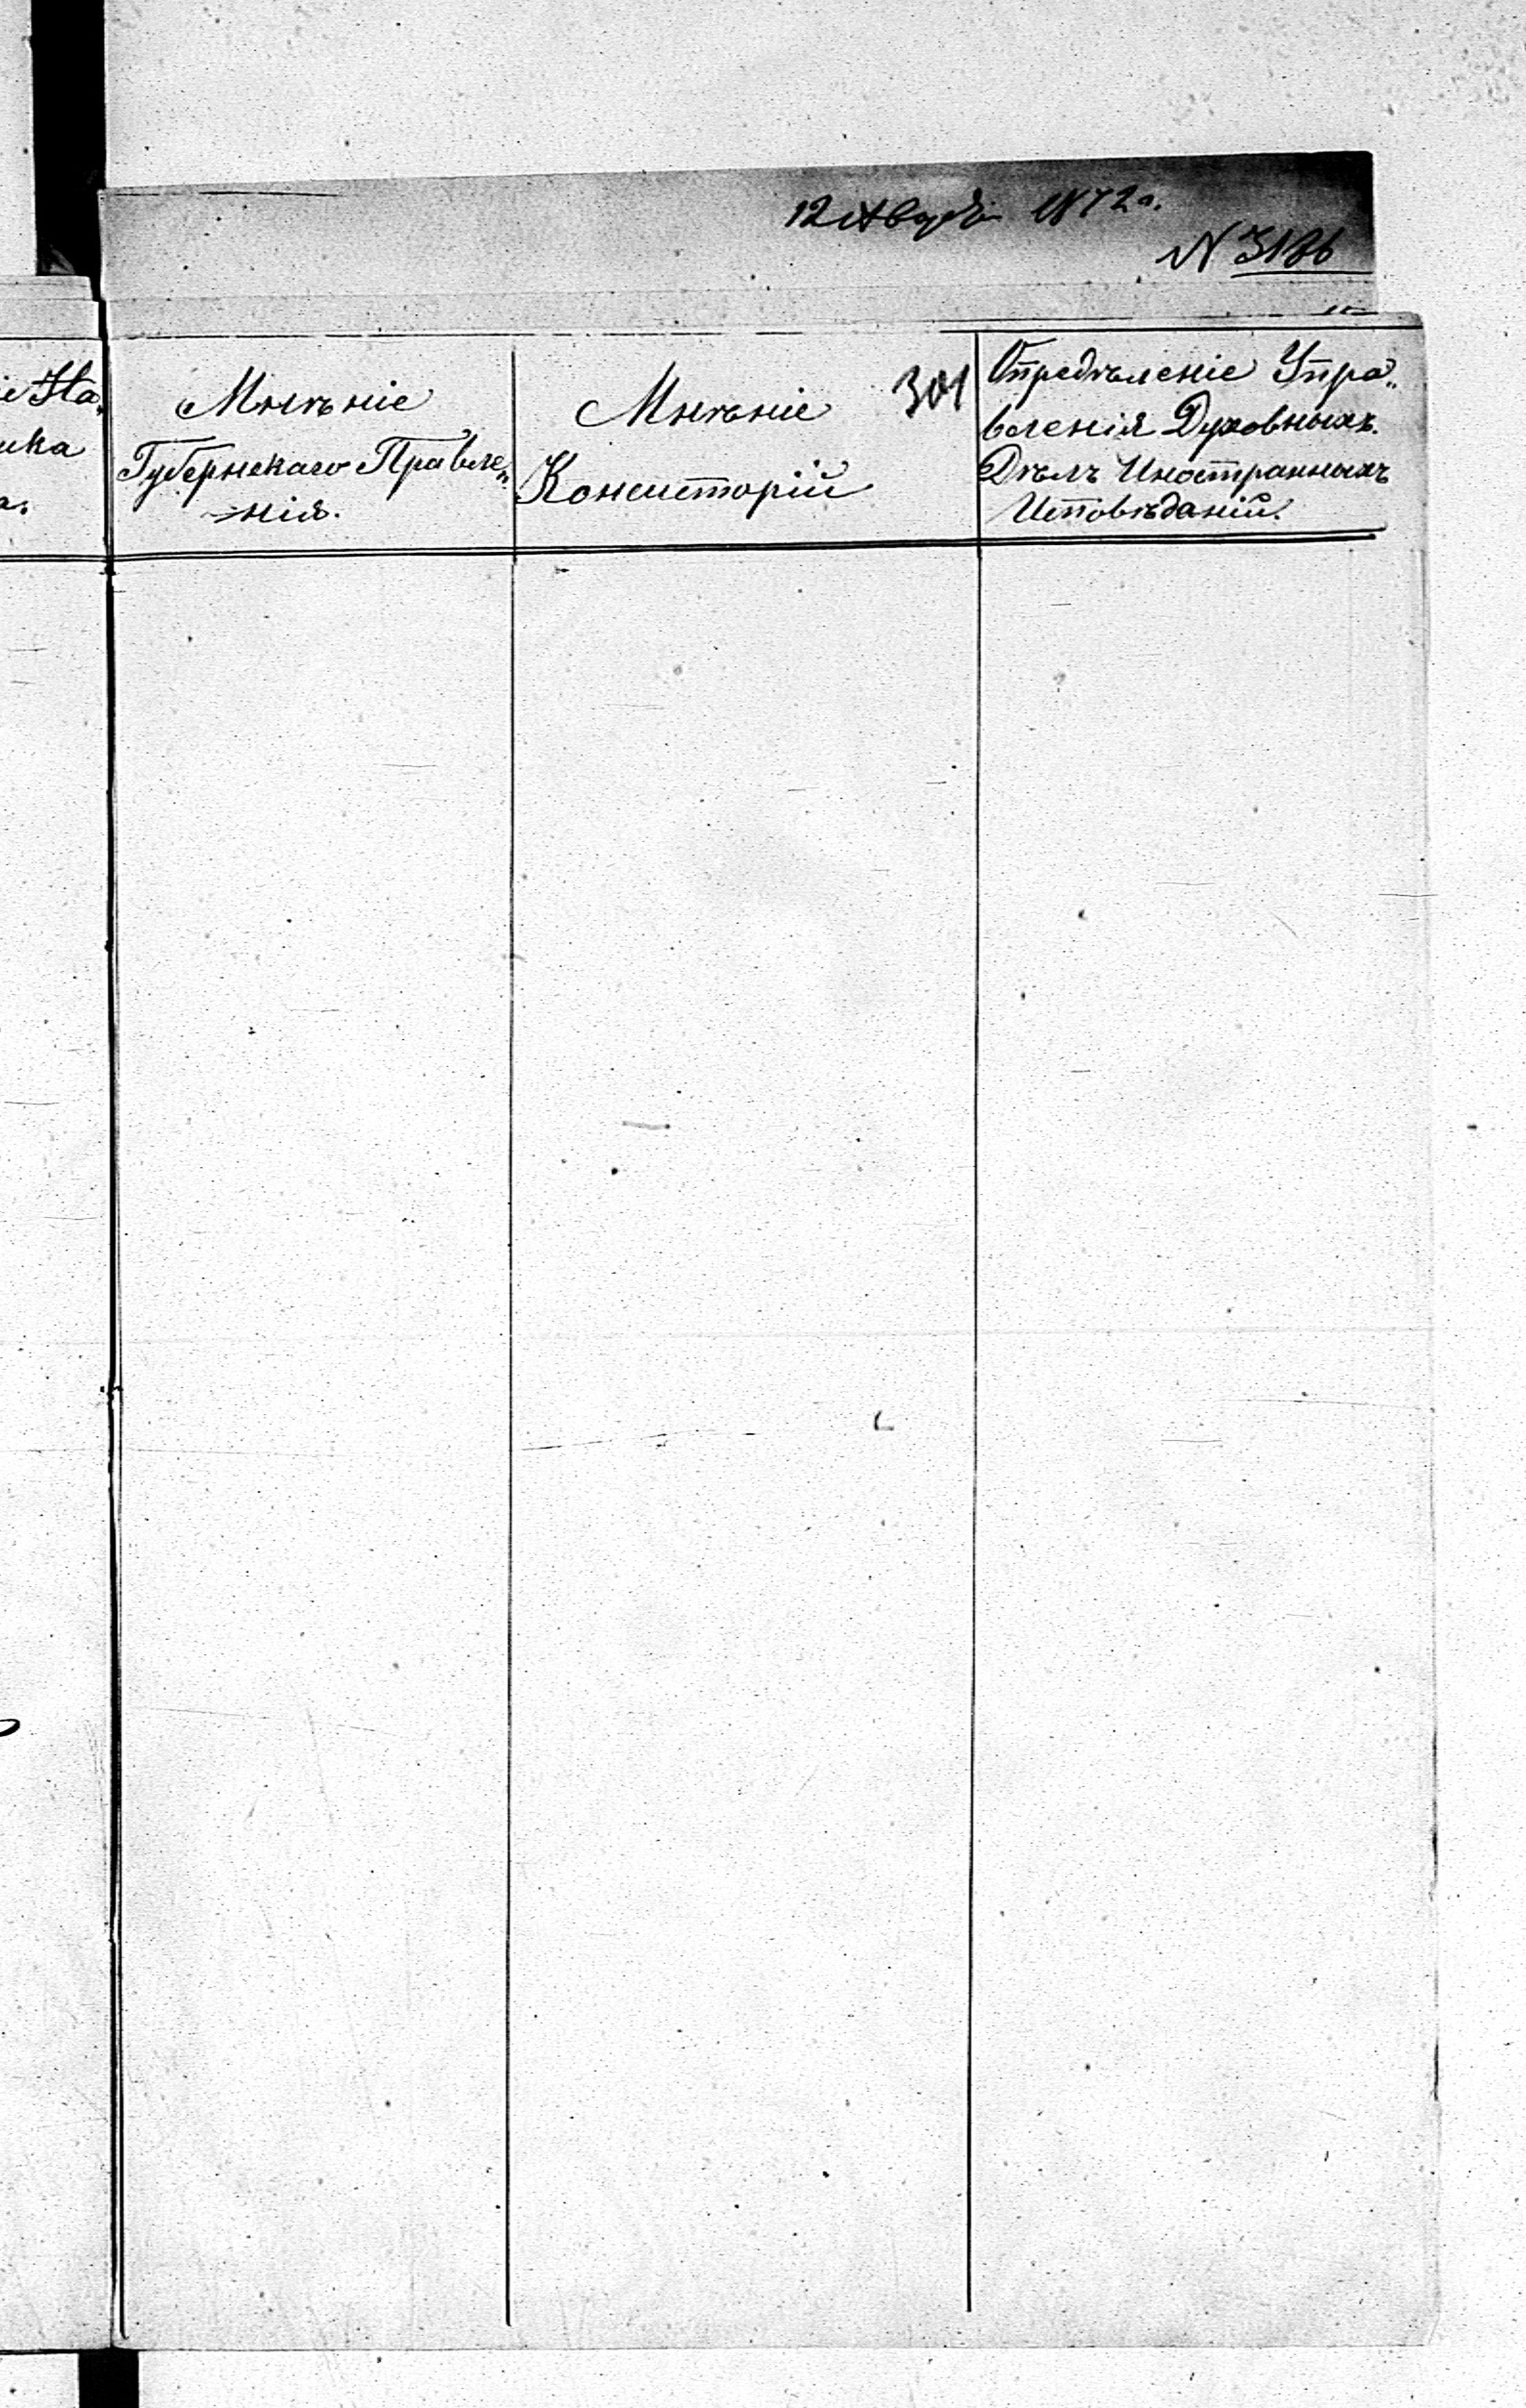 12 1872 г.
N 3186
Мнѣніе
Губернскаго Правле„
нія.
Мнѣніе
Консисторіи
301
Опредѣленіе Упра„
вленія Духовныхъ
Дѣлъ Иностранныхъ
Исповѣданій.